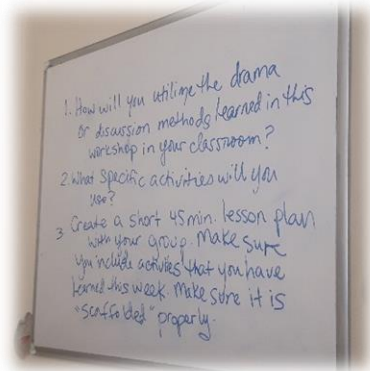 1. How will you utilize the drama
or discussion methods learned in this
workshop in your classroom?
2. What specific activities will you
use?
3. Create a short 45 min. lesson plan
with your group. Make sure
you include activities that you have
learned this week. Make sure it is
"scaffolded" properly.